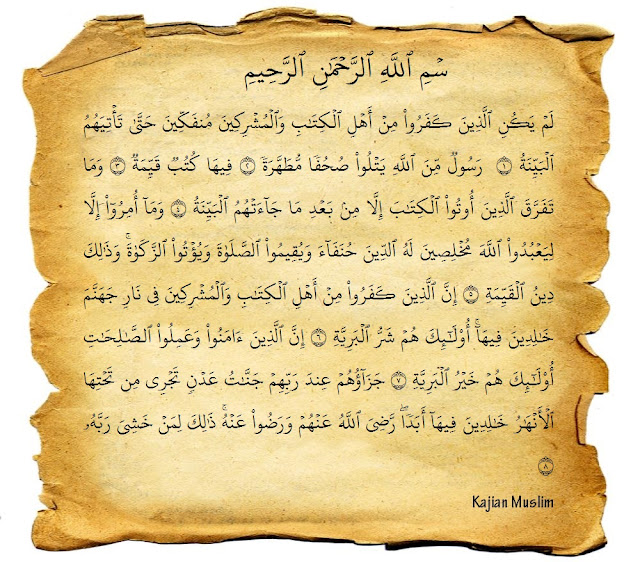 سْمِ ٱللَّهِ ٱلرَّحْمَٰنِ ٱلرَّحِيمِ
لَمْ يَكُنِ ٱلَّذِينَ كَفَرُوا۟ مِنْ أَهْلِ ٱلْكِتَٰبِ وَٱلْمُشْرِكِينَ مُنفَكِّينَ حَتَّىٰ تَأْتِيَهُمُ
ٱلْبَيِّنَةُ ۝١ رَسُولٌ مِّنَ ٱللَّهِ يَتْلُوا۟ صُحُفًا مُّطَهَّرَةً ۝٢ فِيهَا كُتُبٌ قَيِّمَةٌ ۝٣ وَمَا
تَفَرَّقَ ٱلَّذِينَ أُوتُوا۟ ٱلْكِتَٰبَ إِلَّا مِنۢ بَعْدِ مَا جَآءَتْهُمُ ٱلْبَيِّنَةُ ۝٤ وَمَآ أُمِرُوٓا۟ إِلَّا
لِيَعْبُدُوا۟ ٱللَّهَ مُخْلِصِينَ لَهُ ٱلدِّينَ حُنَفَآءَ وَيُقِيمُوا۟ ٱلصَّلَوٰةَ وَيُؤْتُوا۟ ٱلزَّكَوٰةَ ۚ وَذَٰلِكَ
دِينُ ٱلْقَيِّمَةِ ۝٥ إِنَّ ٱلَّذِينَ كَفَرُوا۟ مِنْ أَهْلِ ٱلْكِتَٰبِ وَٱلْمُشْرِكِينَ فِى نَارِ جَهَنَّمَ
خَٰلِدِينَ فِيهَآ ۚ أُو۟لَٰٓئِكَ هُمْ شَرُّ ٱلْبَرِيَّةِ ۝٦ إِنَّ ٱلَّذِينَ ءَامَنُوا۟ وَعَمِلُوا۟ ٱلصَّٰلِحَٰتِ
أُو۟لَٰٓئِكَ هُمْ خَيْرُ ٱلْبَرِيَّةِ ۝٧ جَزَآؤُهُمْ عِندَ رَبِّهِمْ جَنَّٰتُ عَدْنٍ تَجْرِى مِن تَحْتِهَا
ٱلْأَنْهَٰرُ خَٰلِدِينَ فِيهَآ أَبَدًا ۖ رَّضِىَ ٱللَّهُ عَنْهُمْ وَرَضُوا۟ عَنْهُ ۚ ذَٰلِكَ لِمَنْ خَشِىَ رَبَّهُۥ
۝٨
Kajian Muslim